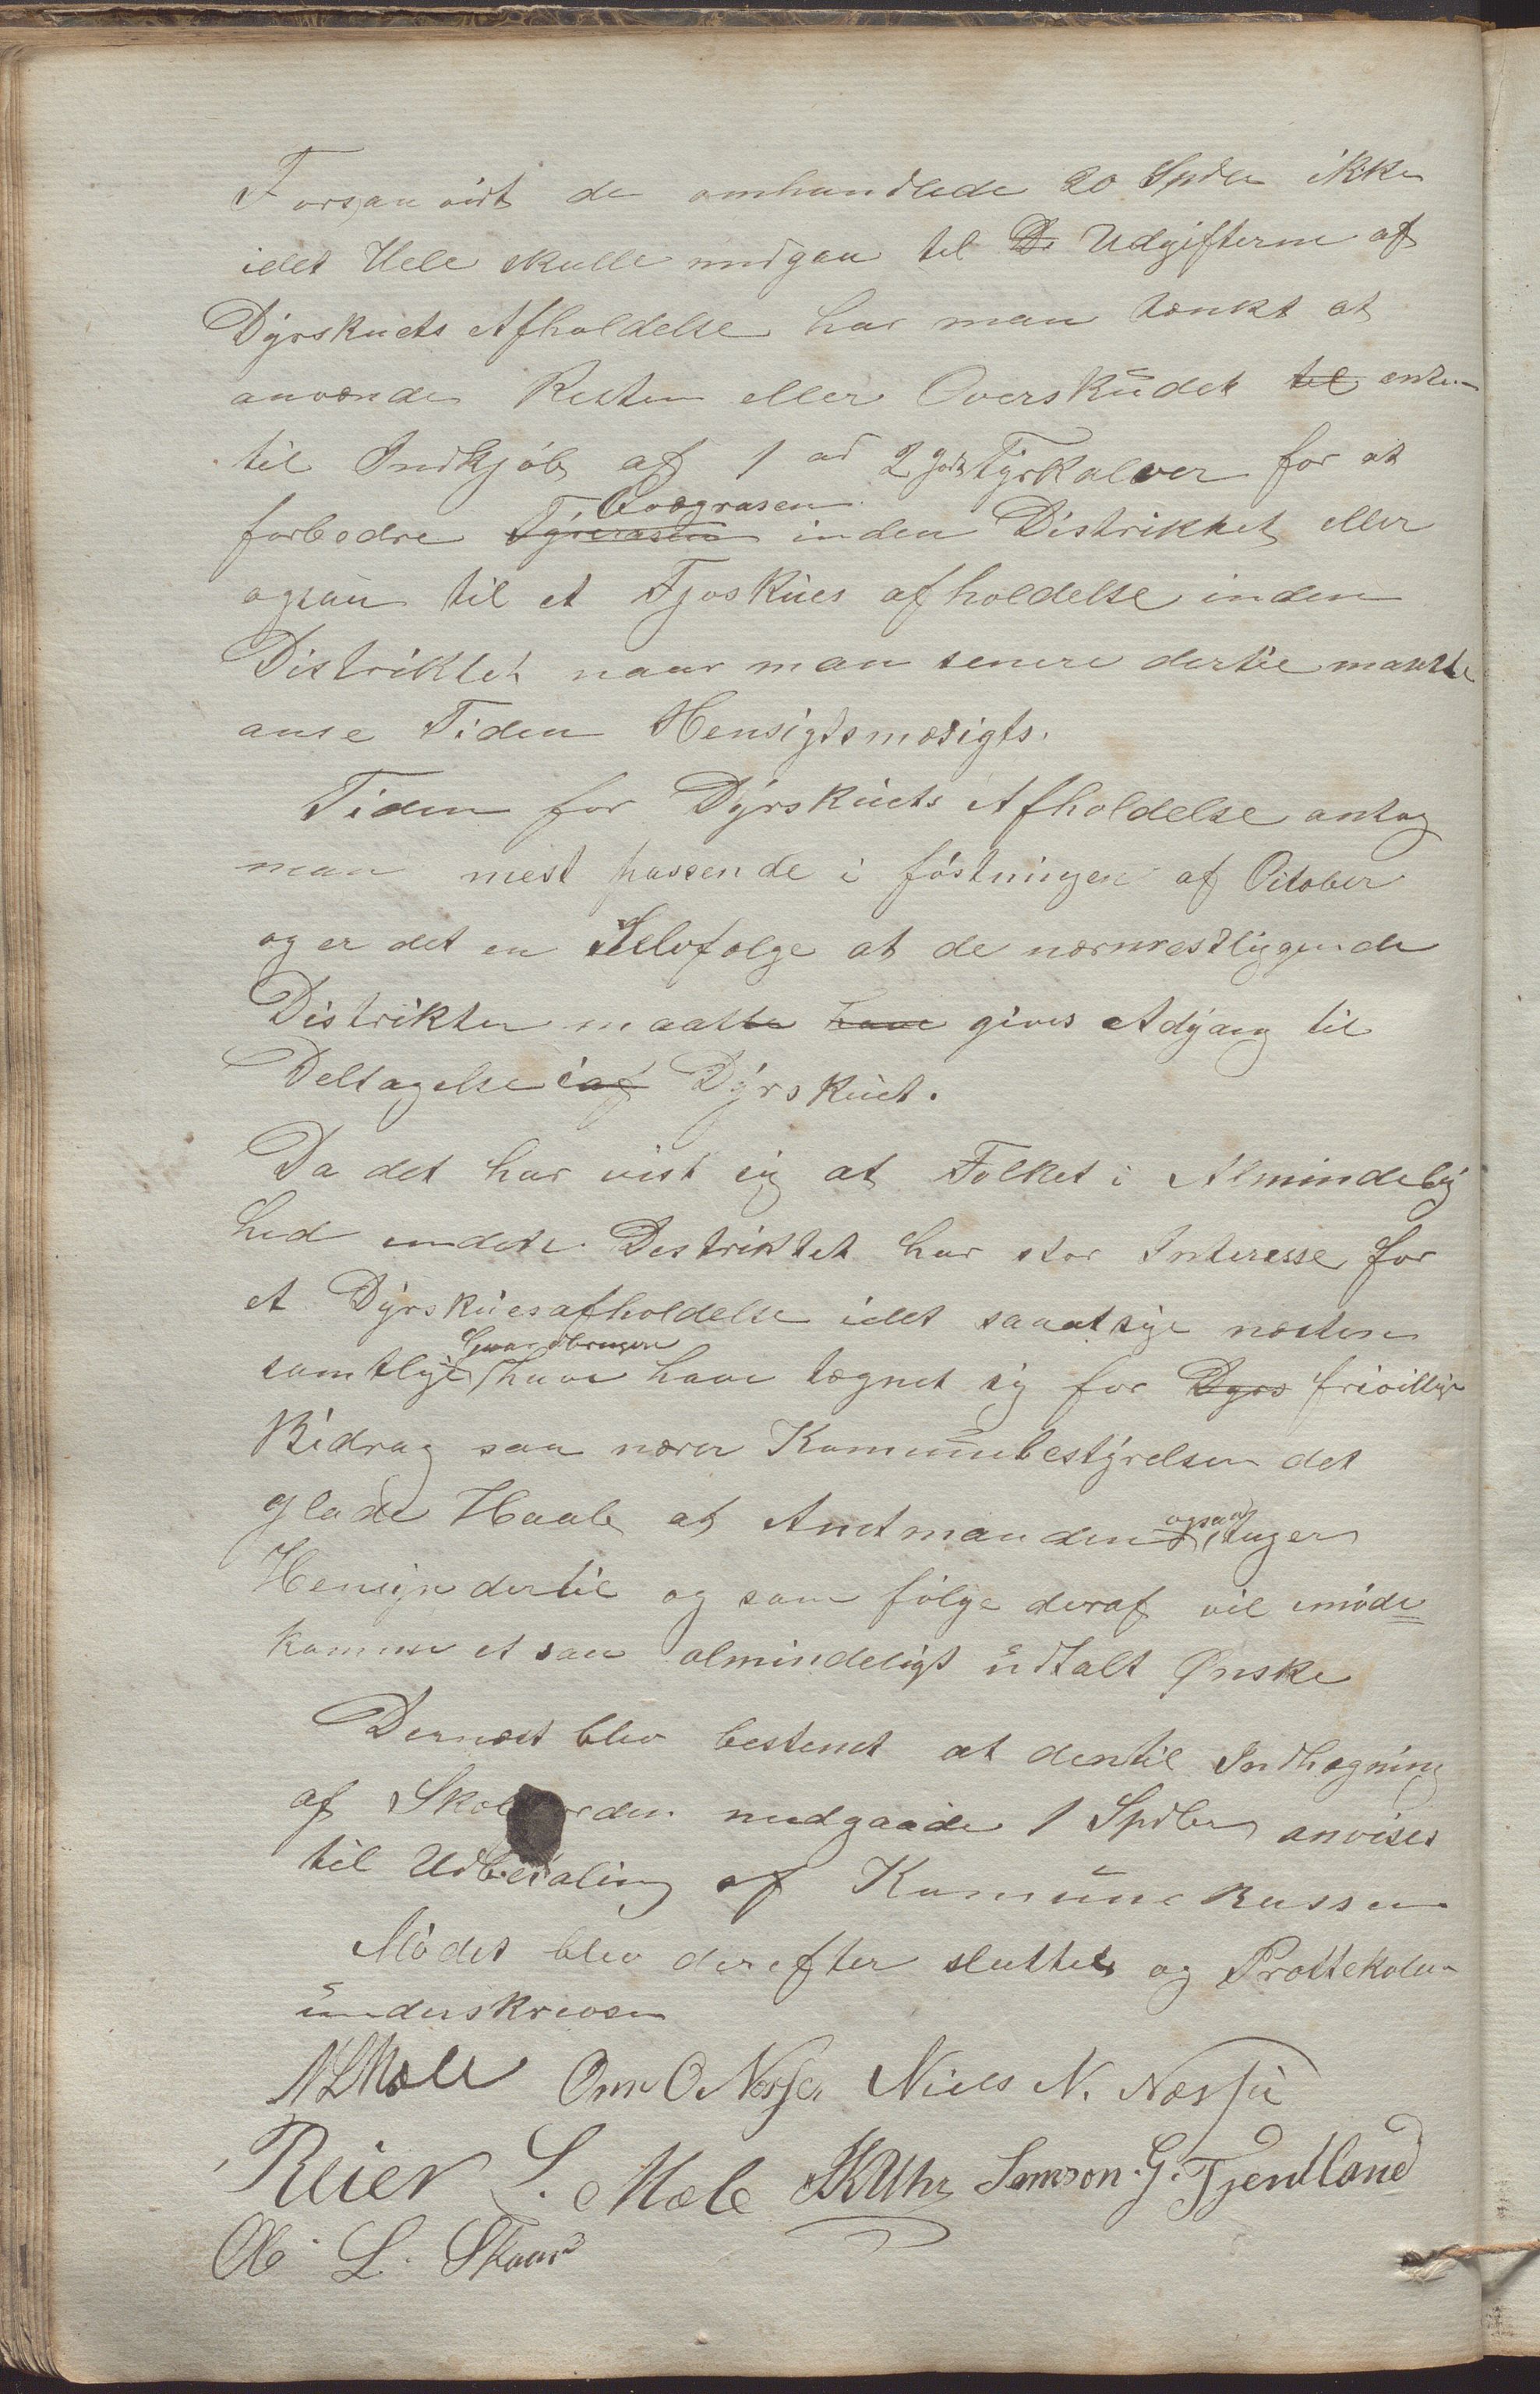 Forsaavidt de omhandlede 20 Spdlr ikke
idet Hele skulle medgaa til De Udgifterne af
Dyrskuets Afholdelse har man tænkt at
anvænde Resten eller Overskudet til enten
til Indkjøb af 1 ad 2 gode Tyrkalver for at
forbedre Tyrerasen Qvægrasen inden Distriktet eller
ogsaa til et Fjøskues afholdelse inden
Distriktet naar man senere dertil maatte
anse Tiden Hensigtsmæsigts.
Tiden for Dyrskuets Afholdelse antog
man mest passende i føstningen af October
og er det en Selvfølge at de nærmestliggende
Distrikter maatte have gives Adgang til
Deltagelse i af Dyrskuet.
Da det har vist sig at Folket i Almindelig
hed indete Destriktet har stor Interesse for
et Dyrskuesafholdelse idet saaatsige næsten
samtlige Gaardbrugere have have tegnet sig for Dyrs frivillige
Bidrag saa nærer Kommunebestyrelsen det
glade Haab at Amtmanden ogsaa tager
Hensyn dertil og som følge deraf vil imøde
komme et saa almindeligt udtalt Ønske
Dernæst blev bestemt at den til Indhegning
af medgaaede 1 Spdler anvises
til Udbetaling af Kommunekassen
Mødet blev derefter sluttet og Prottekolen
underskreven
N L Mæle Omn O Nesse Niels N. Næssu
Reier L. Mæle Samson. G. Tjentland
Ol. L. Skaar